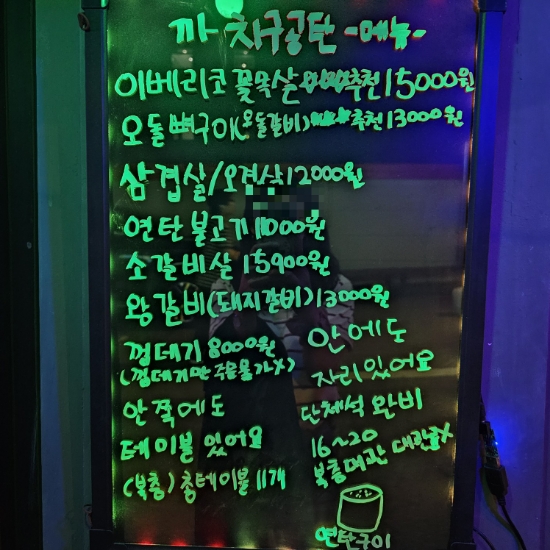 까치구공탄 -메뉴-
이베리코 꽃목살 추천 15000원
오돌뼈구이(오돌갈비) 추천 13000원
삼겹살/오겹살 12000원
연탄불고기 11000원
소갈비살 15900원
왕갈비(돼지갈비) 13000원
껍데기 8000원
(껍데기만 주문불가X)
안쪽에도
테이블 있어요
(복층) 총테이블 11개
안에도
자리있어요
단체석 완비
16~20
복층대관
연탄구이